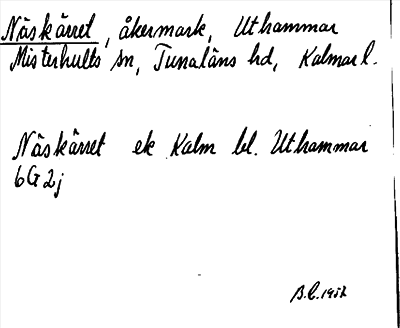 Näskärret, åkermark, Uthammar
Misterhults sn, Tunaläns hd, Kalmar l.
Näskärret ek Kalm bl. Uthammar
6G2j
B.C. 1952